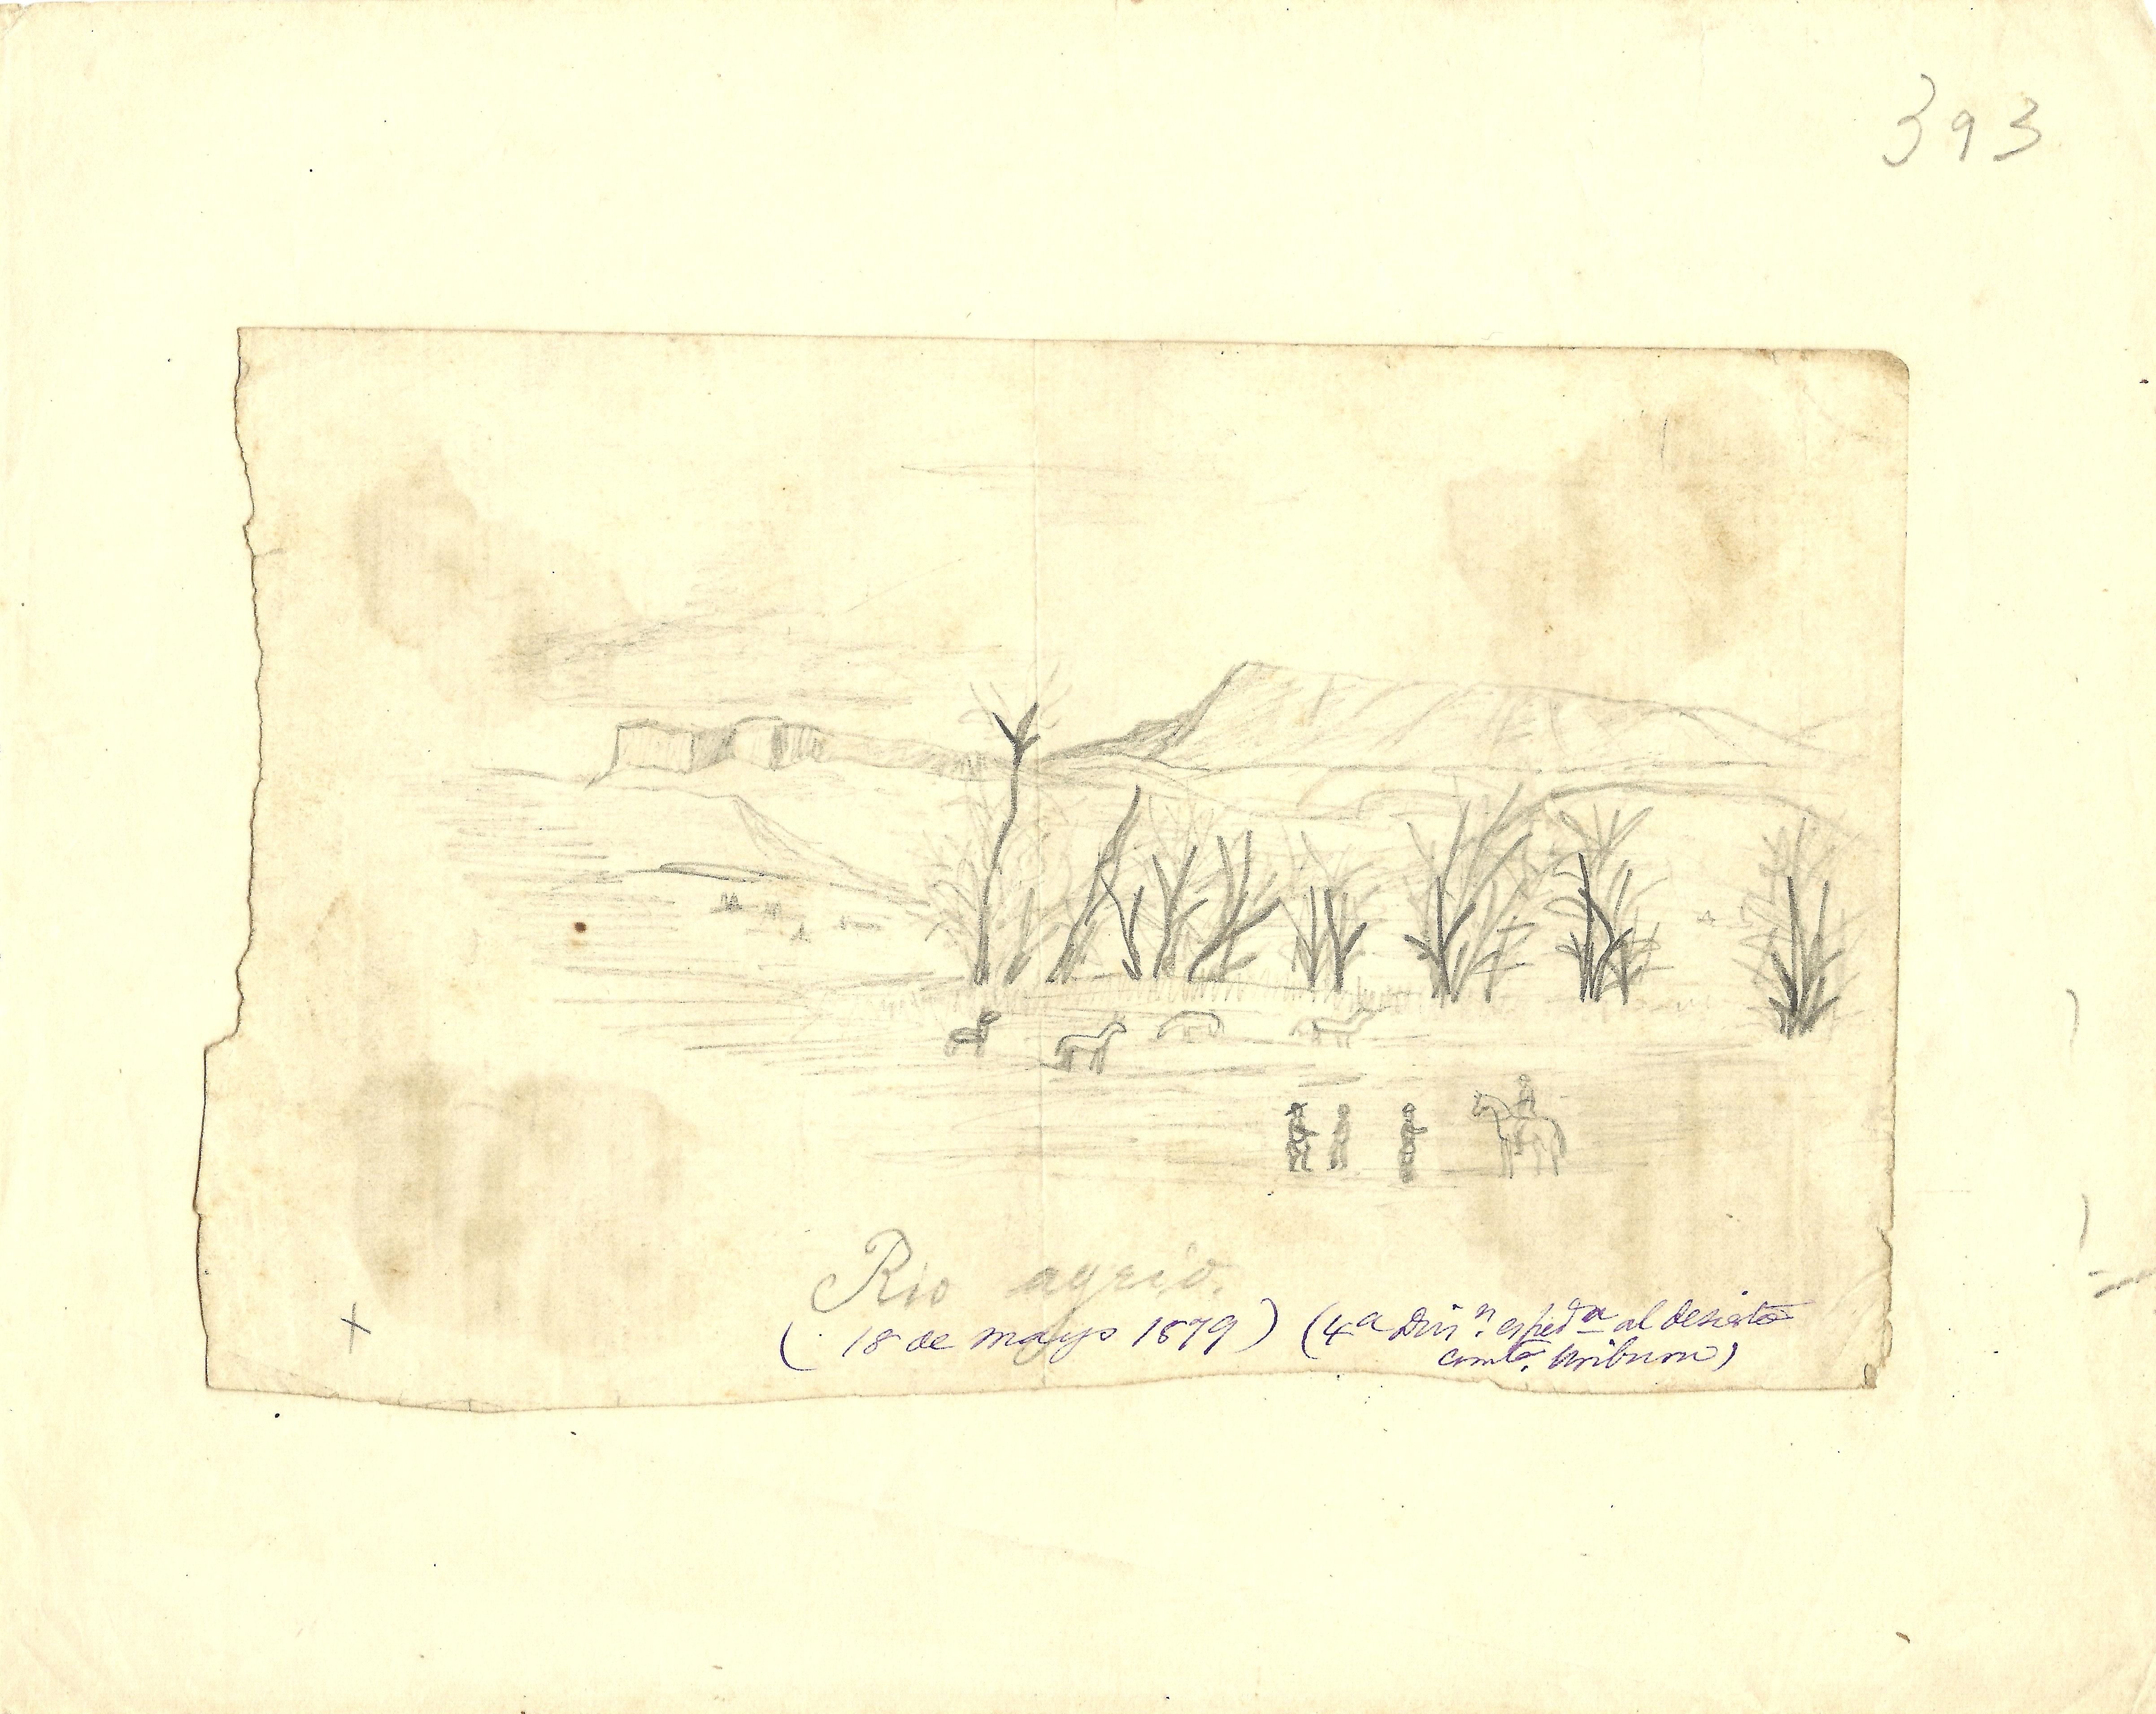 393
Rio agrio.
(18 de mayo 1879) (4ª Divⁿ. espedª al desierto
comte. Uriburu)